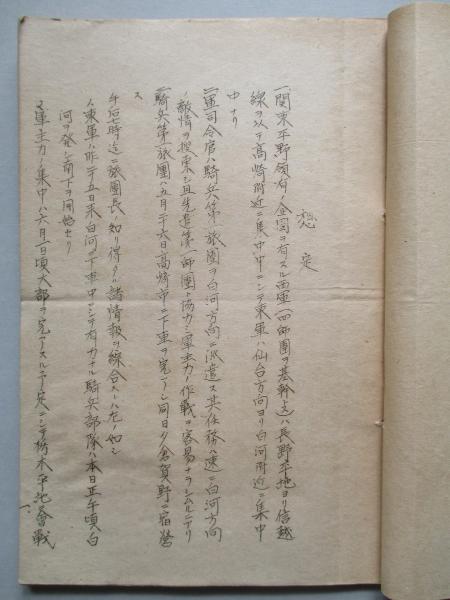 想定
一、関東平野領有ノ企図ヲ有スル西軍(四師團ヲ基幹トス)ハ長野平地ヨリ信越
線ヲ以テ高崎附近ニ集中中ニシテ東軍ハ仙台方向ヨリ白河附近ニ集中
中ナリ
二、軍司令官ハ騎兵第一旅團ヲ白河方向ニ派遣ス其任務ハ速ニ白河方向
ノ敵情ヲ捜索シ且先遣第一師團ト協力シ軍主力ノ作戦ヲ容易ナラシムルニアリ
三、騎兵第一旅團ハ五月二十六日高崎市ニ下車ヲ完了シ同日夕倉賀野ニ宿営
ス
午后 時迄ニ旅團長ノ知リ得タル諸情報ヲ綜合スレハ左ノ如シ
1、東軍ハ昨二十五日来白河ニ下車中ニシテ有力ナル騎兵部隊ハ本日正午頃白
河ヲ発シ南下ヲ開始セリ
2、軍主力ノ集中ハ六月一日頃大部ヲ完了スルニ至ル 栃木平地ノ會戦